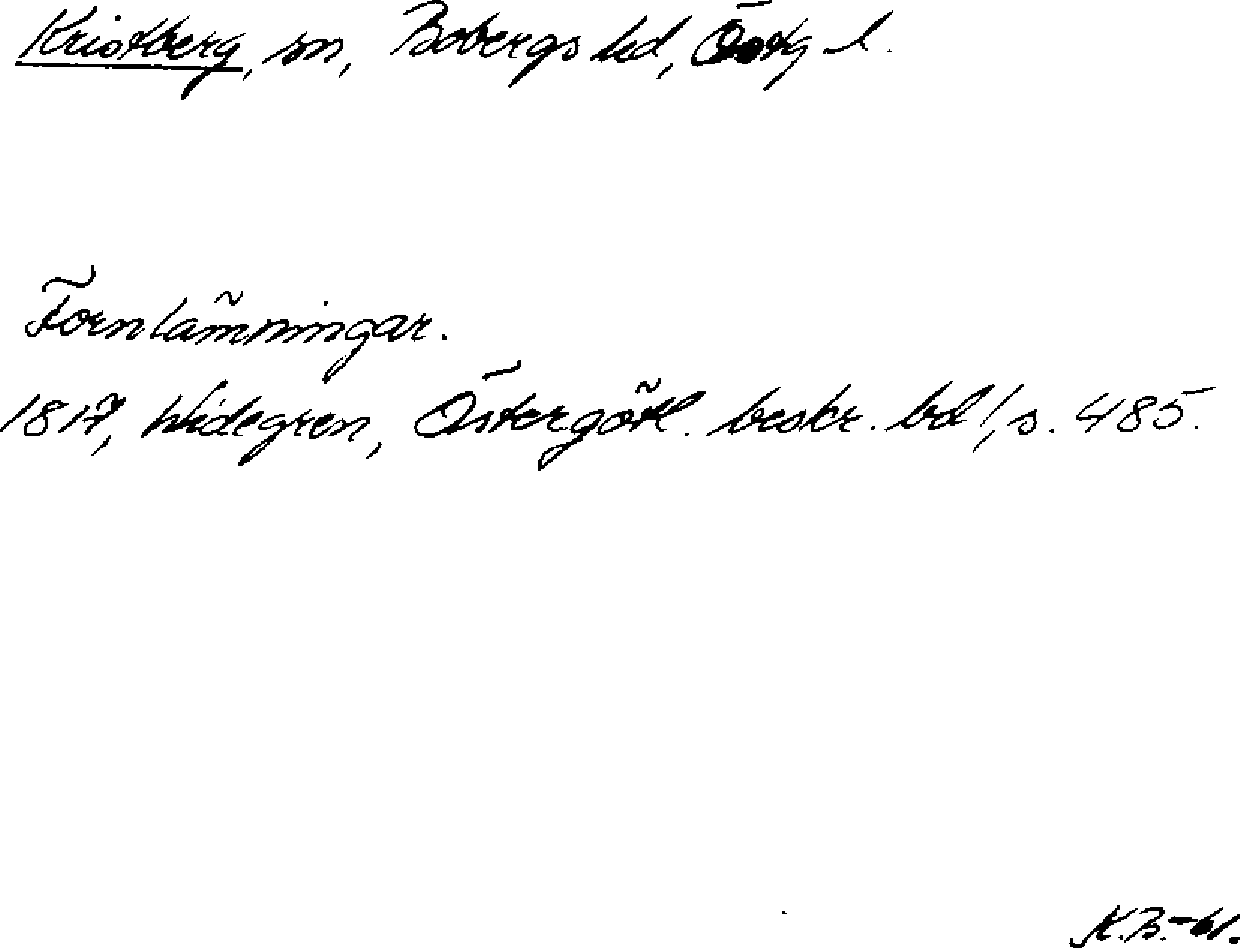 Kristberg, sn, Bobergs hd, Östg l.
Fornlämningar.
1817, Widegren, Östergötl. beskr. bd 1, s. 485.
K.B.-61.